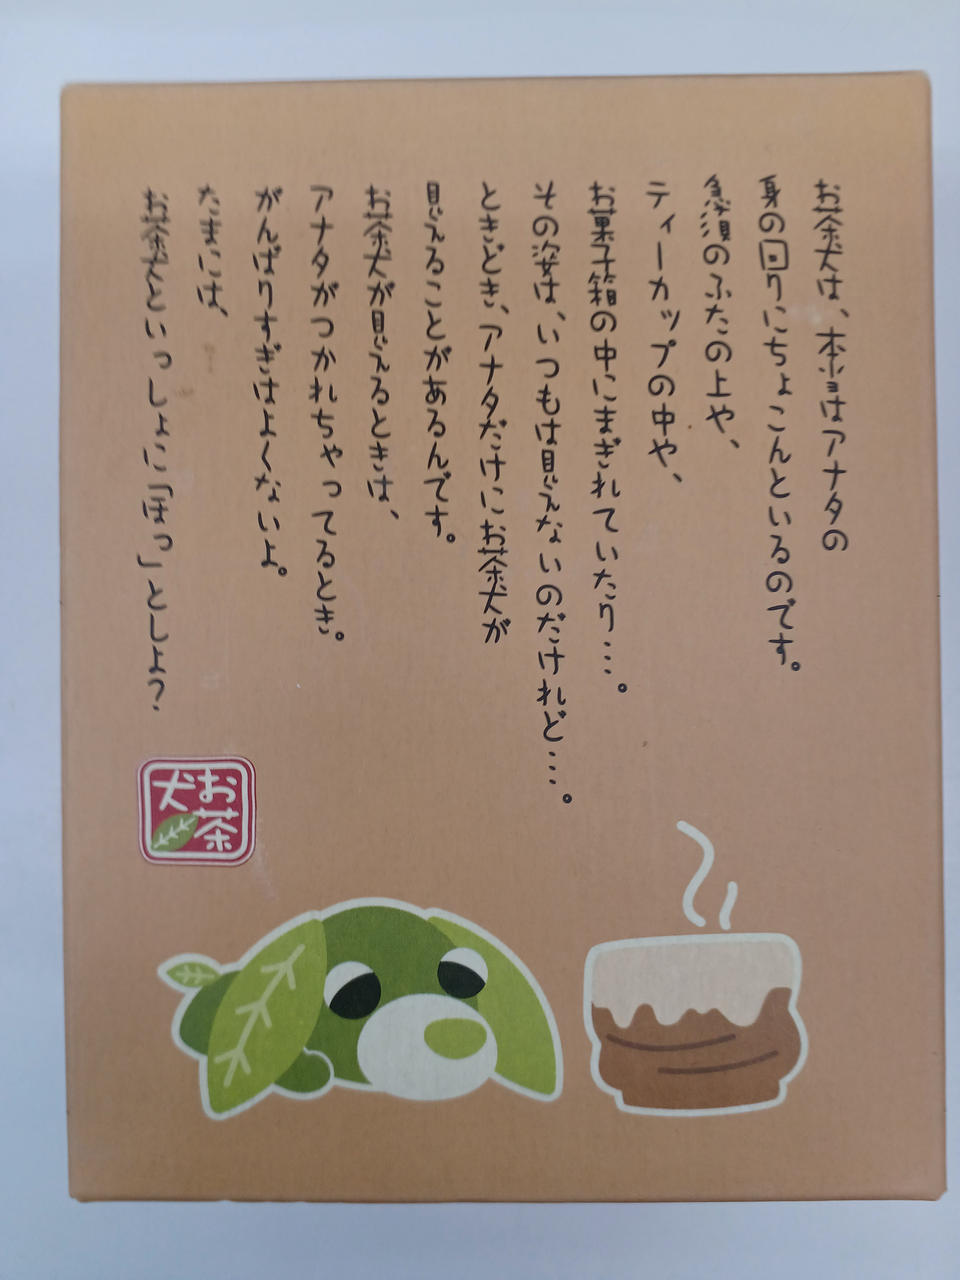 お茶犬は、本当はアナタの
身の回りにちょこんといるのです。
急須のふたの上や、
ティーカップの中や、
お菓子箱の中にまぎれていたり…。
その姿は、いつもは見えないのだけれど…。
ときどき、アナタだけにお茶犬が
見えることがあるんです。
お茶犬が見えるときは、
アナタがつかれちゃってるとき。
がんばりすぎはよくないよ。
たまには、
お茶犬といっしょに「ほっ」としよ?
お茶
犬